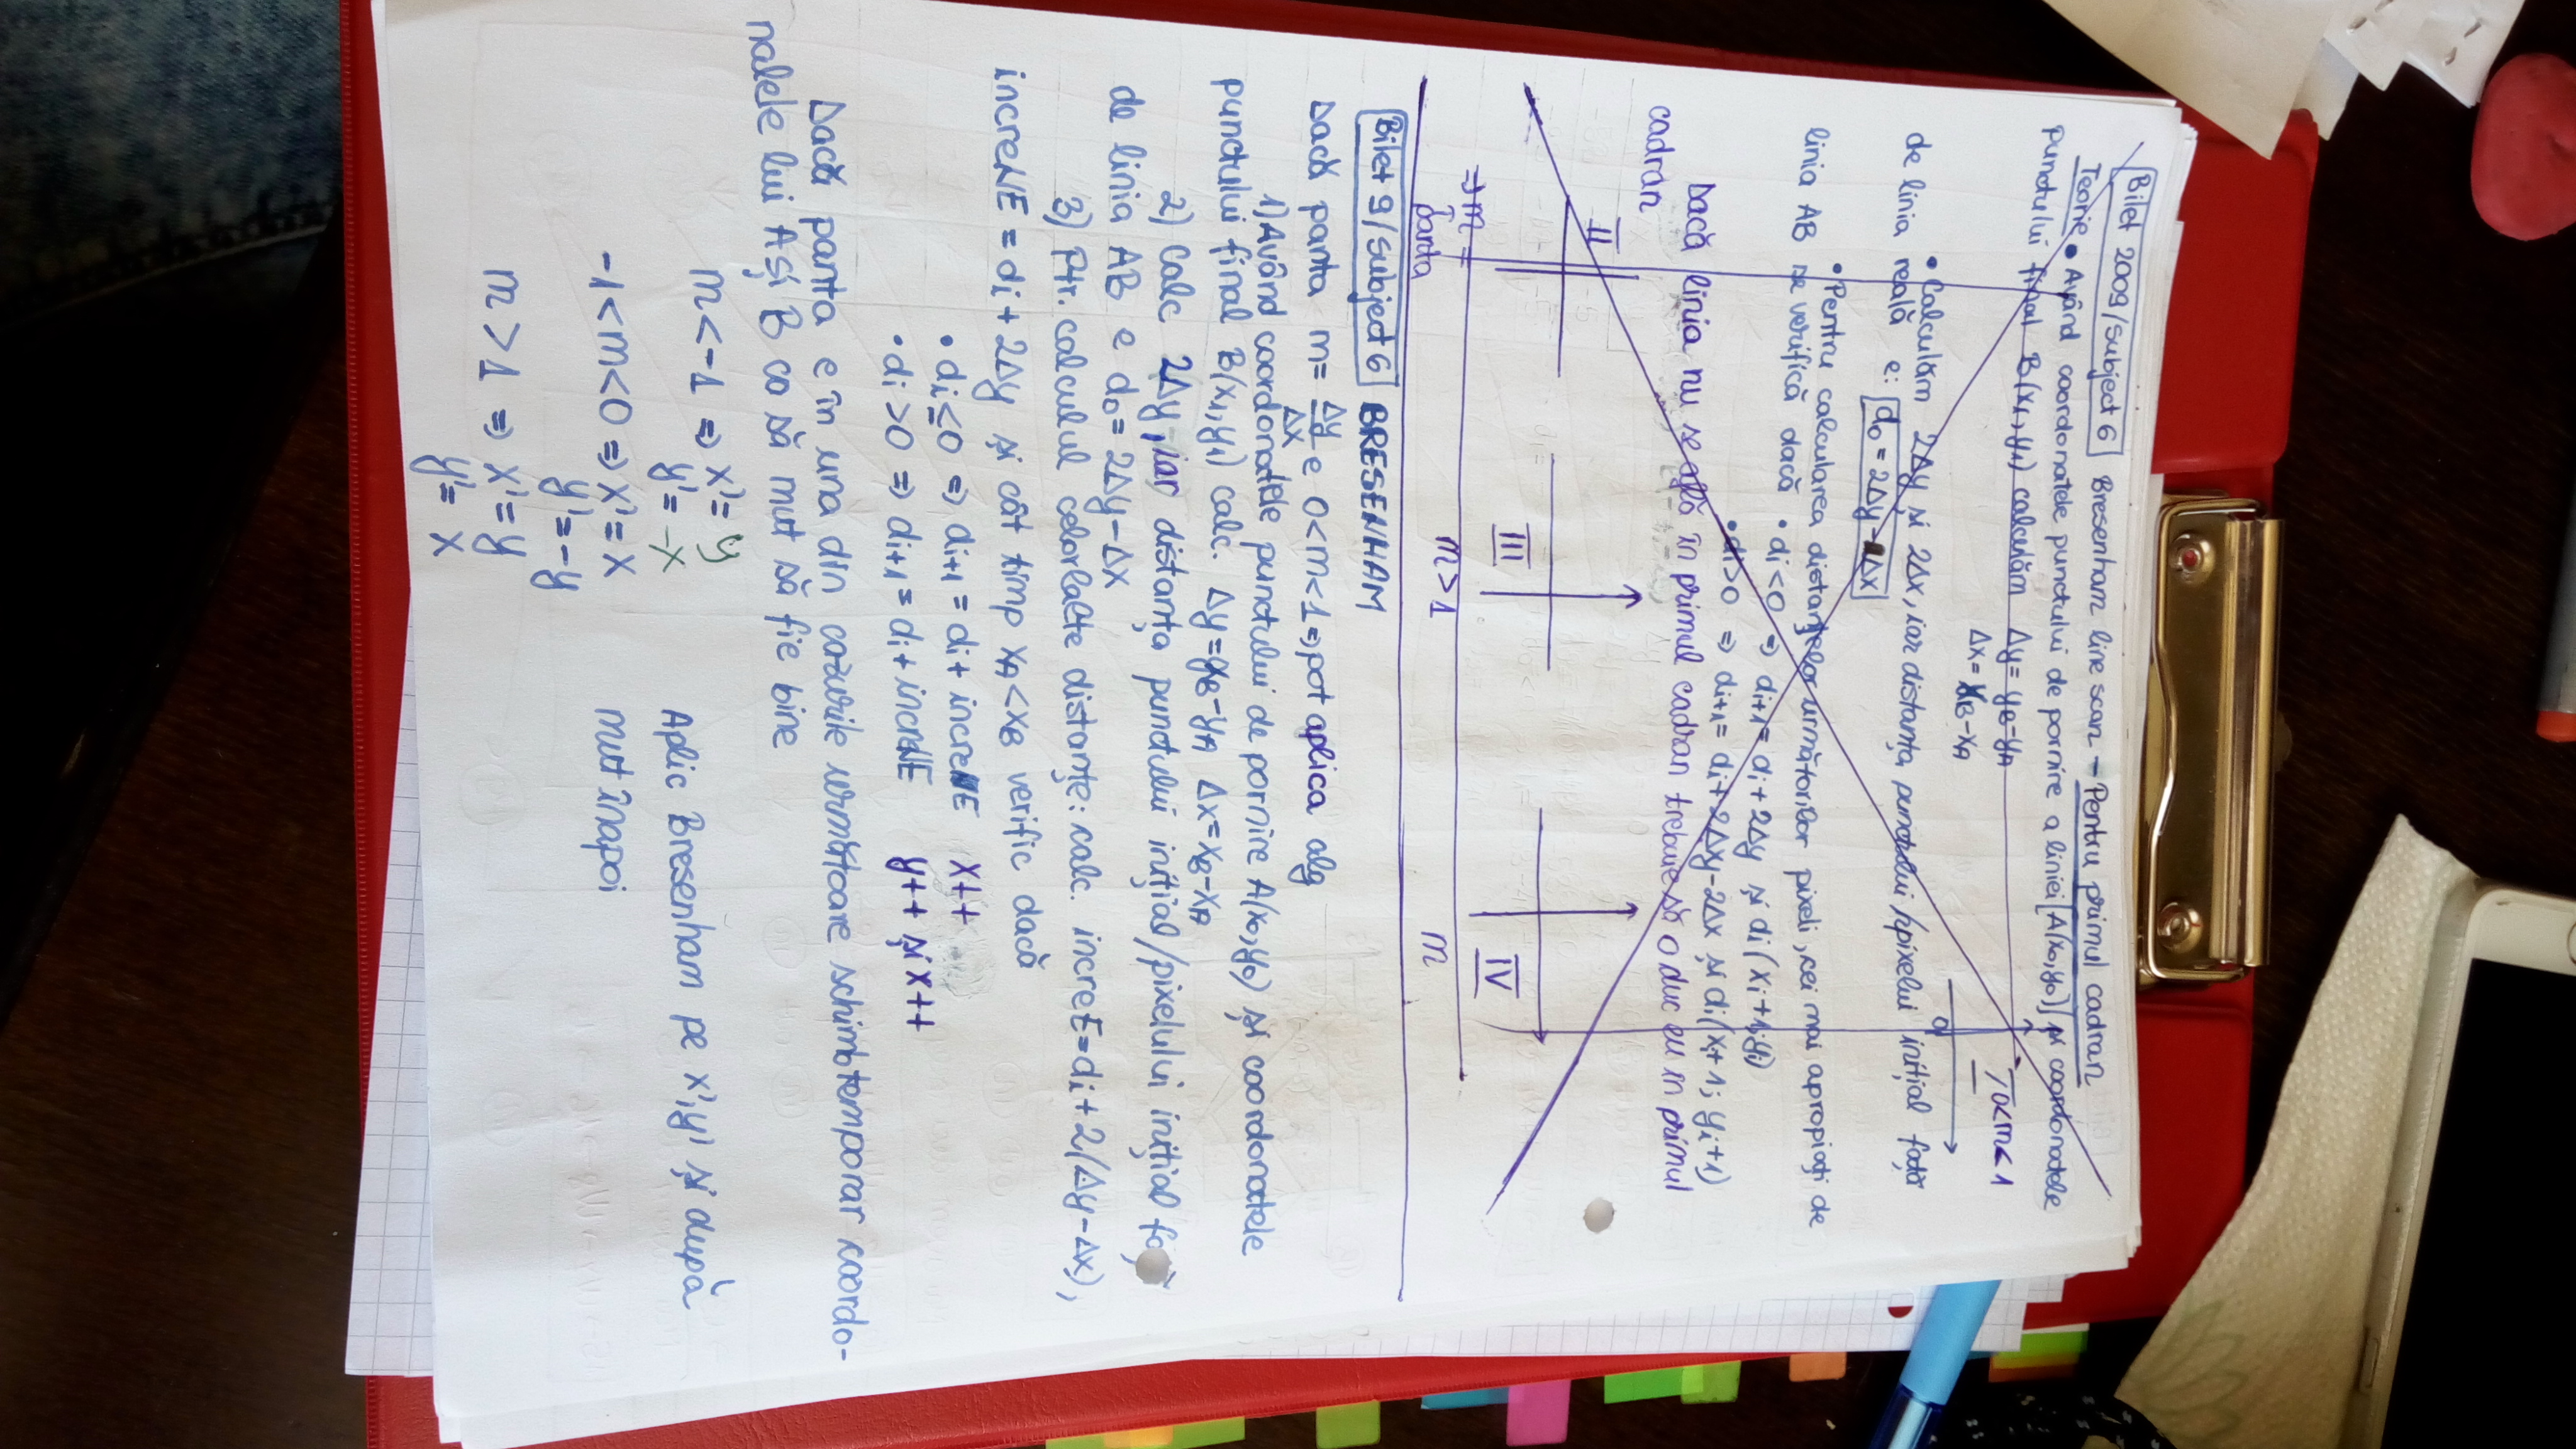 Bilet 2009/Subject 6 Bresenham line scan – Pentru primul cadran
Teorie • Având coordonatele punctului de pornire a liniei [A(x₀,y₀)] și coordonatele
punctului final B(x₁,y₁) calculăm Δy= yB-yA
Δx= xB-xA
I 0<m<1
0
• Calculăm 2Δy și 2Δx, iar distanța punctului /pixelui inițial față
de linia reală e: d₀ = 2Δy - Δx
• Pentru calcularea distanțelor următorilor pixeli, cei mai apropiați de
linia AB se verifică dacă • di<0 ⇒ di+1= di+2Δy și di(xi+1;yi)
• di>0 ⇒ di+1= di+2Δxy-2Δx și di(x+1; yi+1)
Dacă linia nu se află în primul cadran trebuie să o duc eu în primul
cadran
II
III
IV
⇒ m =
panta
m>1
m
Bilet 9/Subject 6 BRESENHAM
Dacă panta m= Δy/Δx e 0<m<1⇒pot aplica alg
1) Având coordonatele punctului de pornire A(x₀,y₀) și coordonatele
punctului final B(x₁,y₁) calc. Δy=yB-yA Δx=xB-xA
2) Calc 2Δy, iar distanța punctului inițial/pixelului inițial
de linia AB e d₀= 2Δy-Δx
3) Ptr. calculul celorlalte distanțe: calc. increE=di+2(Δy-Δx),
increNE = di+2Δy și cât timp xA<xB verific dacă
• di≤0 ⇒ di+1 = di+ increNE x++
• di>0 ⇒ di+1= di+increNE y++ și x++
Dacă panta e în una din cazurile următoare schimb temporar coordo-
nalele lui A și B ca să mut să fie bine
m<-1 ⇒ x'= y
y'= -x
Aplic Bresenham pe x',y' și după
-1<m<0 ⇒ x'= x
mut înapoi
y'=-y
m>1 ⇒ x'= y
y'= x